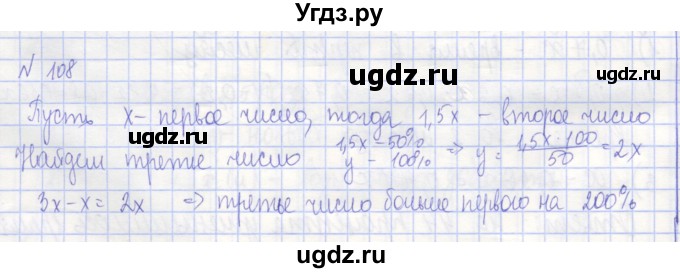 Угдз.ру
N 108
ugdz.ru ugdz.ru
Пусть x - первое число, тогда 1,5x - второе число
Найдем третье число 1,5x - 50% y - 100% => y = 1,5x·100/50 = 2x
3x-x = 2x => третье число больше первого на 200%
ugdz.ru ugdz.ru